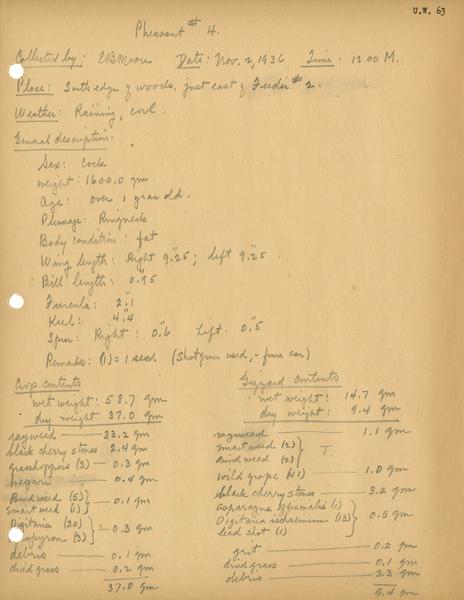 U.W. 63
Pheasant # 4.
Collected by: EBMoore Date: Nov. 2, 1936 Time: 12.00 M.
Place: South edge of woods, just east of Feeder # 2.
Weather: Raining, cool.
General description:
Sex: Cock
Weight: 1600.0 gm.
Age: over 1 year old.
Plumage: Ringneck
Body condition: fat
Wing length: Right 9.25"; left 9.25"
Bill length: 0.95"
Furcula: 2.1"
Keel: 4.4"
Spur: Right: 0.6" Left 0.5"
Remarks: (1) = 1 seed (Shotgun used, - from car)
Crop contents
wet weight: 58.7 gm
dry weight: 37.0 gm
ragweed 33.2 gm
black cherry stones 2.4 gm
grasshoppers (3) 0.3 gm
hegari 0.4 gm
Bindweed (5) } 0.1 gm
Smartweed (1)
Digitaria (20) } 0.3 gm
(3)
debris 0.1 gm
dried grass 0.2 gm
37.0 gm
Gizzard contents
wet weight: 14.7 gm
dry weight: 9.4 gm
ragweed 1.1 gm
Smartweed (2) } T.
Bindweed (2)
Wild grape (41) 1.0 gm
black cherry stones 3.2 gm
asparagus officinalis (1)
Digitaria ischaemum (13) } 0.5 gm
lead shot (1)
grit 0.2 gm
dried grass 0.1 gm
debris 3.3 gm
9.4 gm